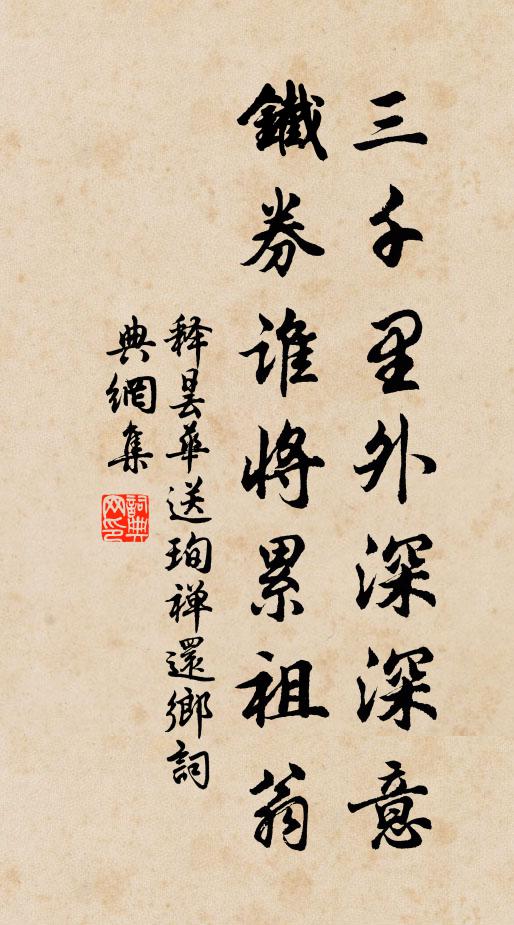 三千里外深深意
鐵券谁將累祖翁
释昙華送珣禅還鄉詞
典網集
詞典网印